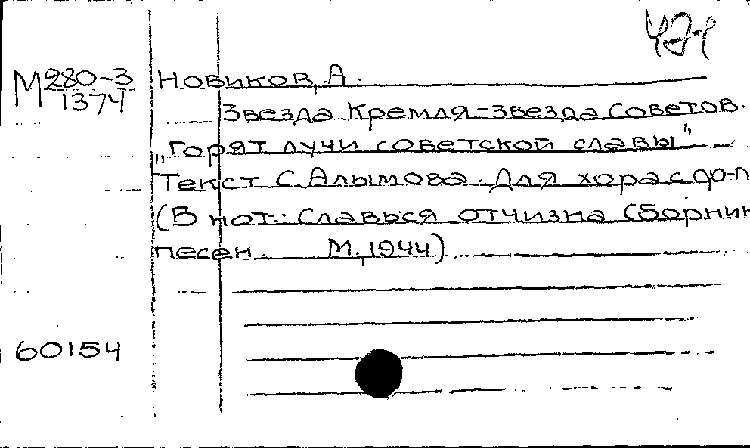 М 280-3 Новиков, А.
1374
Звезда Кремля-звезда советов.
"Горят лучи советской славы"
Текст С. Алымова. Для хора с фо-п
(В нот.: Славься отчизна Сборник
песен. М., 1944)
60154